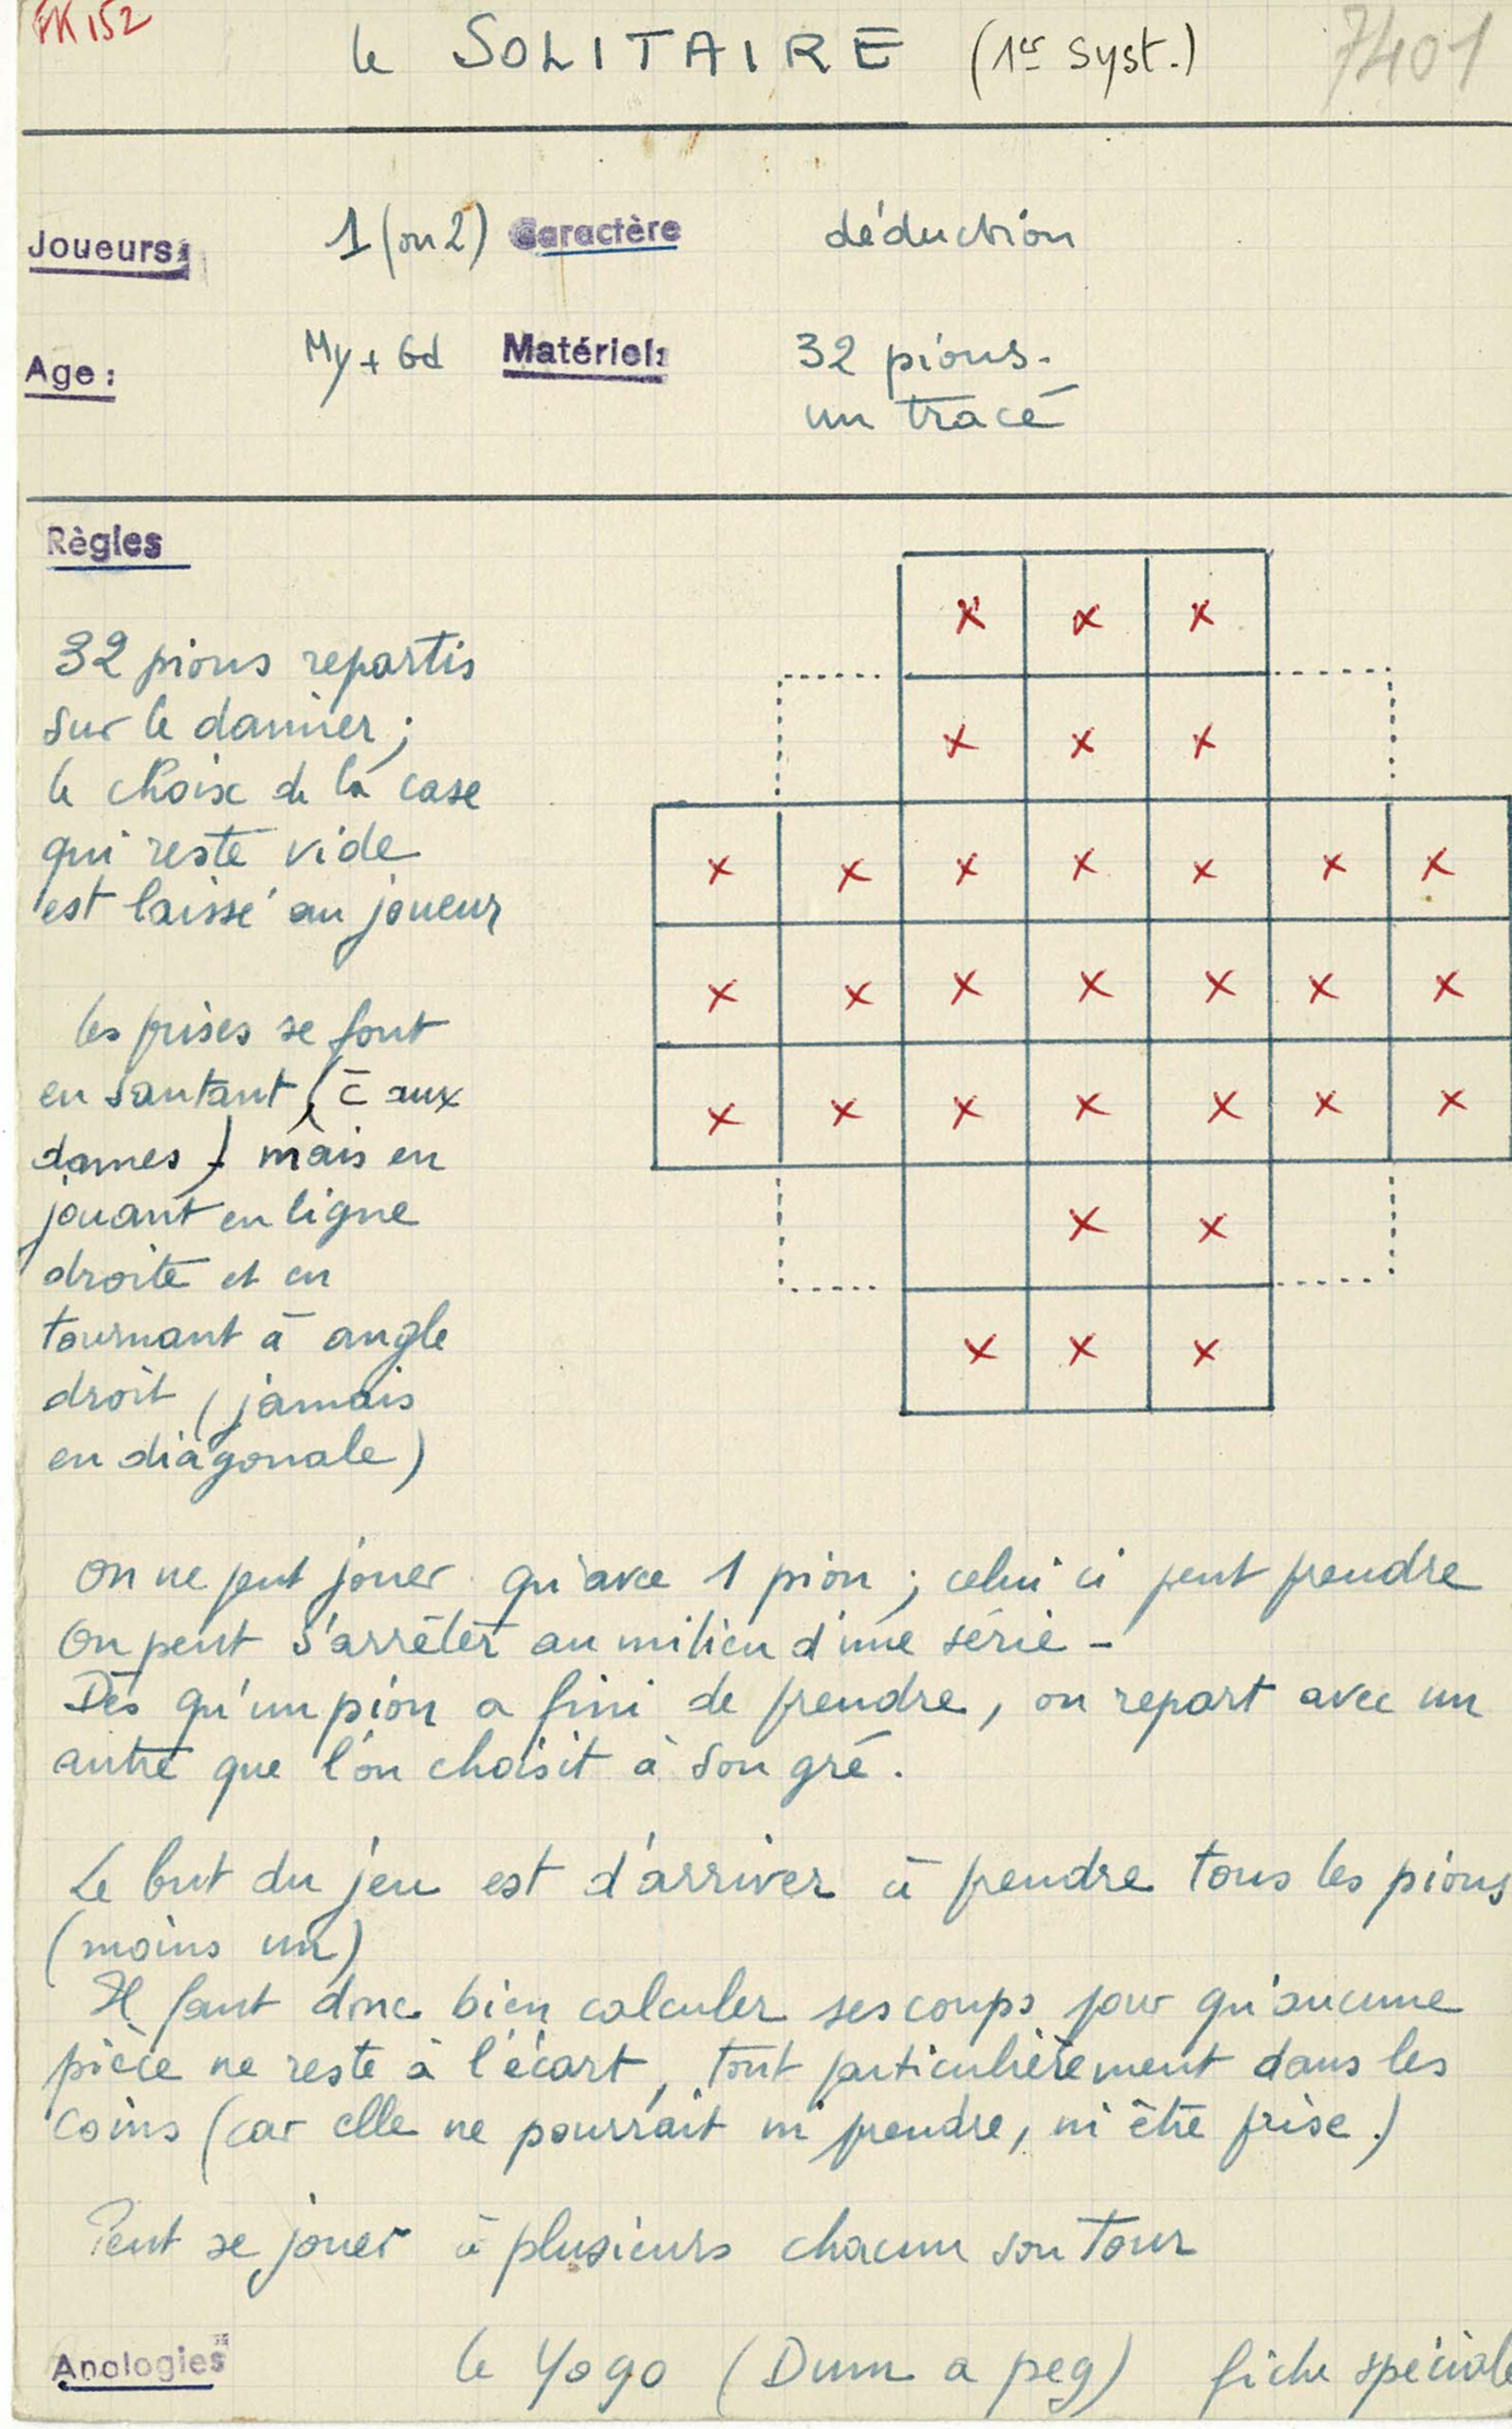 FK 152
le SOLITAIRE (1er syst.)
7401
Joueurs: 1 (ou 2) Caractère déduction
Age: My + Gd Matériel: 32 pions.
un tracé
Règles
32 pions repartis
sur le damier ;
le choix de la case
qui reste vide
est laissé au joueur
les prises se font
en sautant (c̄ aux
dames) mais en
jouant en ligne
droite et en
tournant à angle
droit (jamais
en diagonale)
x x x
x x x
x x x x x x x
x x x x x x x
x x x x x x x
x x
x x x
On ne peut jouer qu'avec 1 pion ; celui ci peut prendre
On peut s'arrêter au milieu d'une série -
Dès qu'un pion a fini de prendre, on repart avec un
autre que l'on choisit à son gré.
Le but du jeu est d'arriver à prendre tous les pions
(moins un)
Il faut donc bien calculer ses coups pour qu'aucune
pièce ne reste à l'écart, tout particulièrement dans les
coins (car elle ne pourrait ni prendre, ni être prise.)
Peut se jouer à plusieurs chacun son tour
Analogies le Yogo (Dum a peg) fiche spéciale